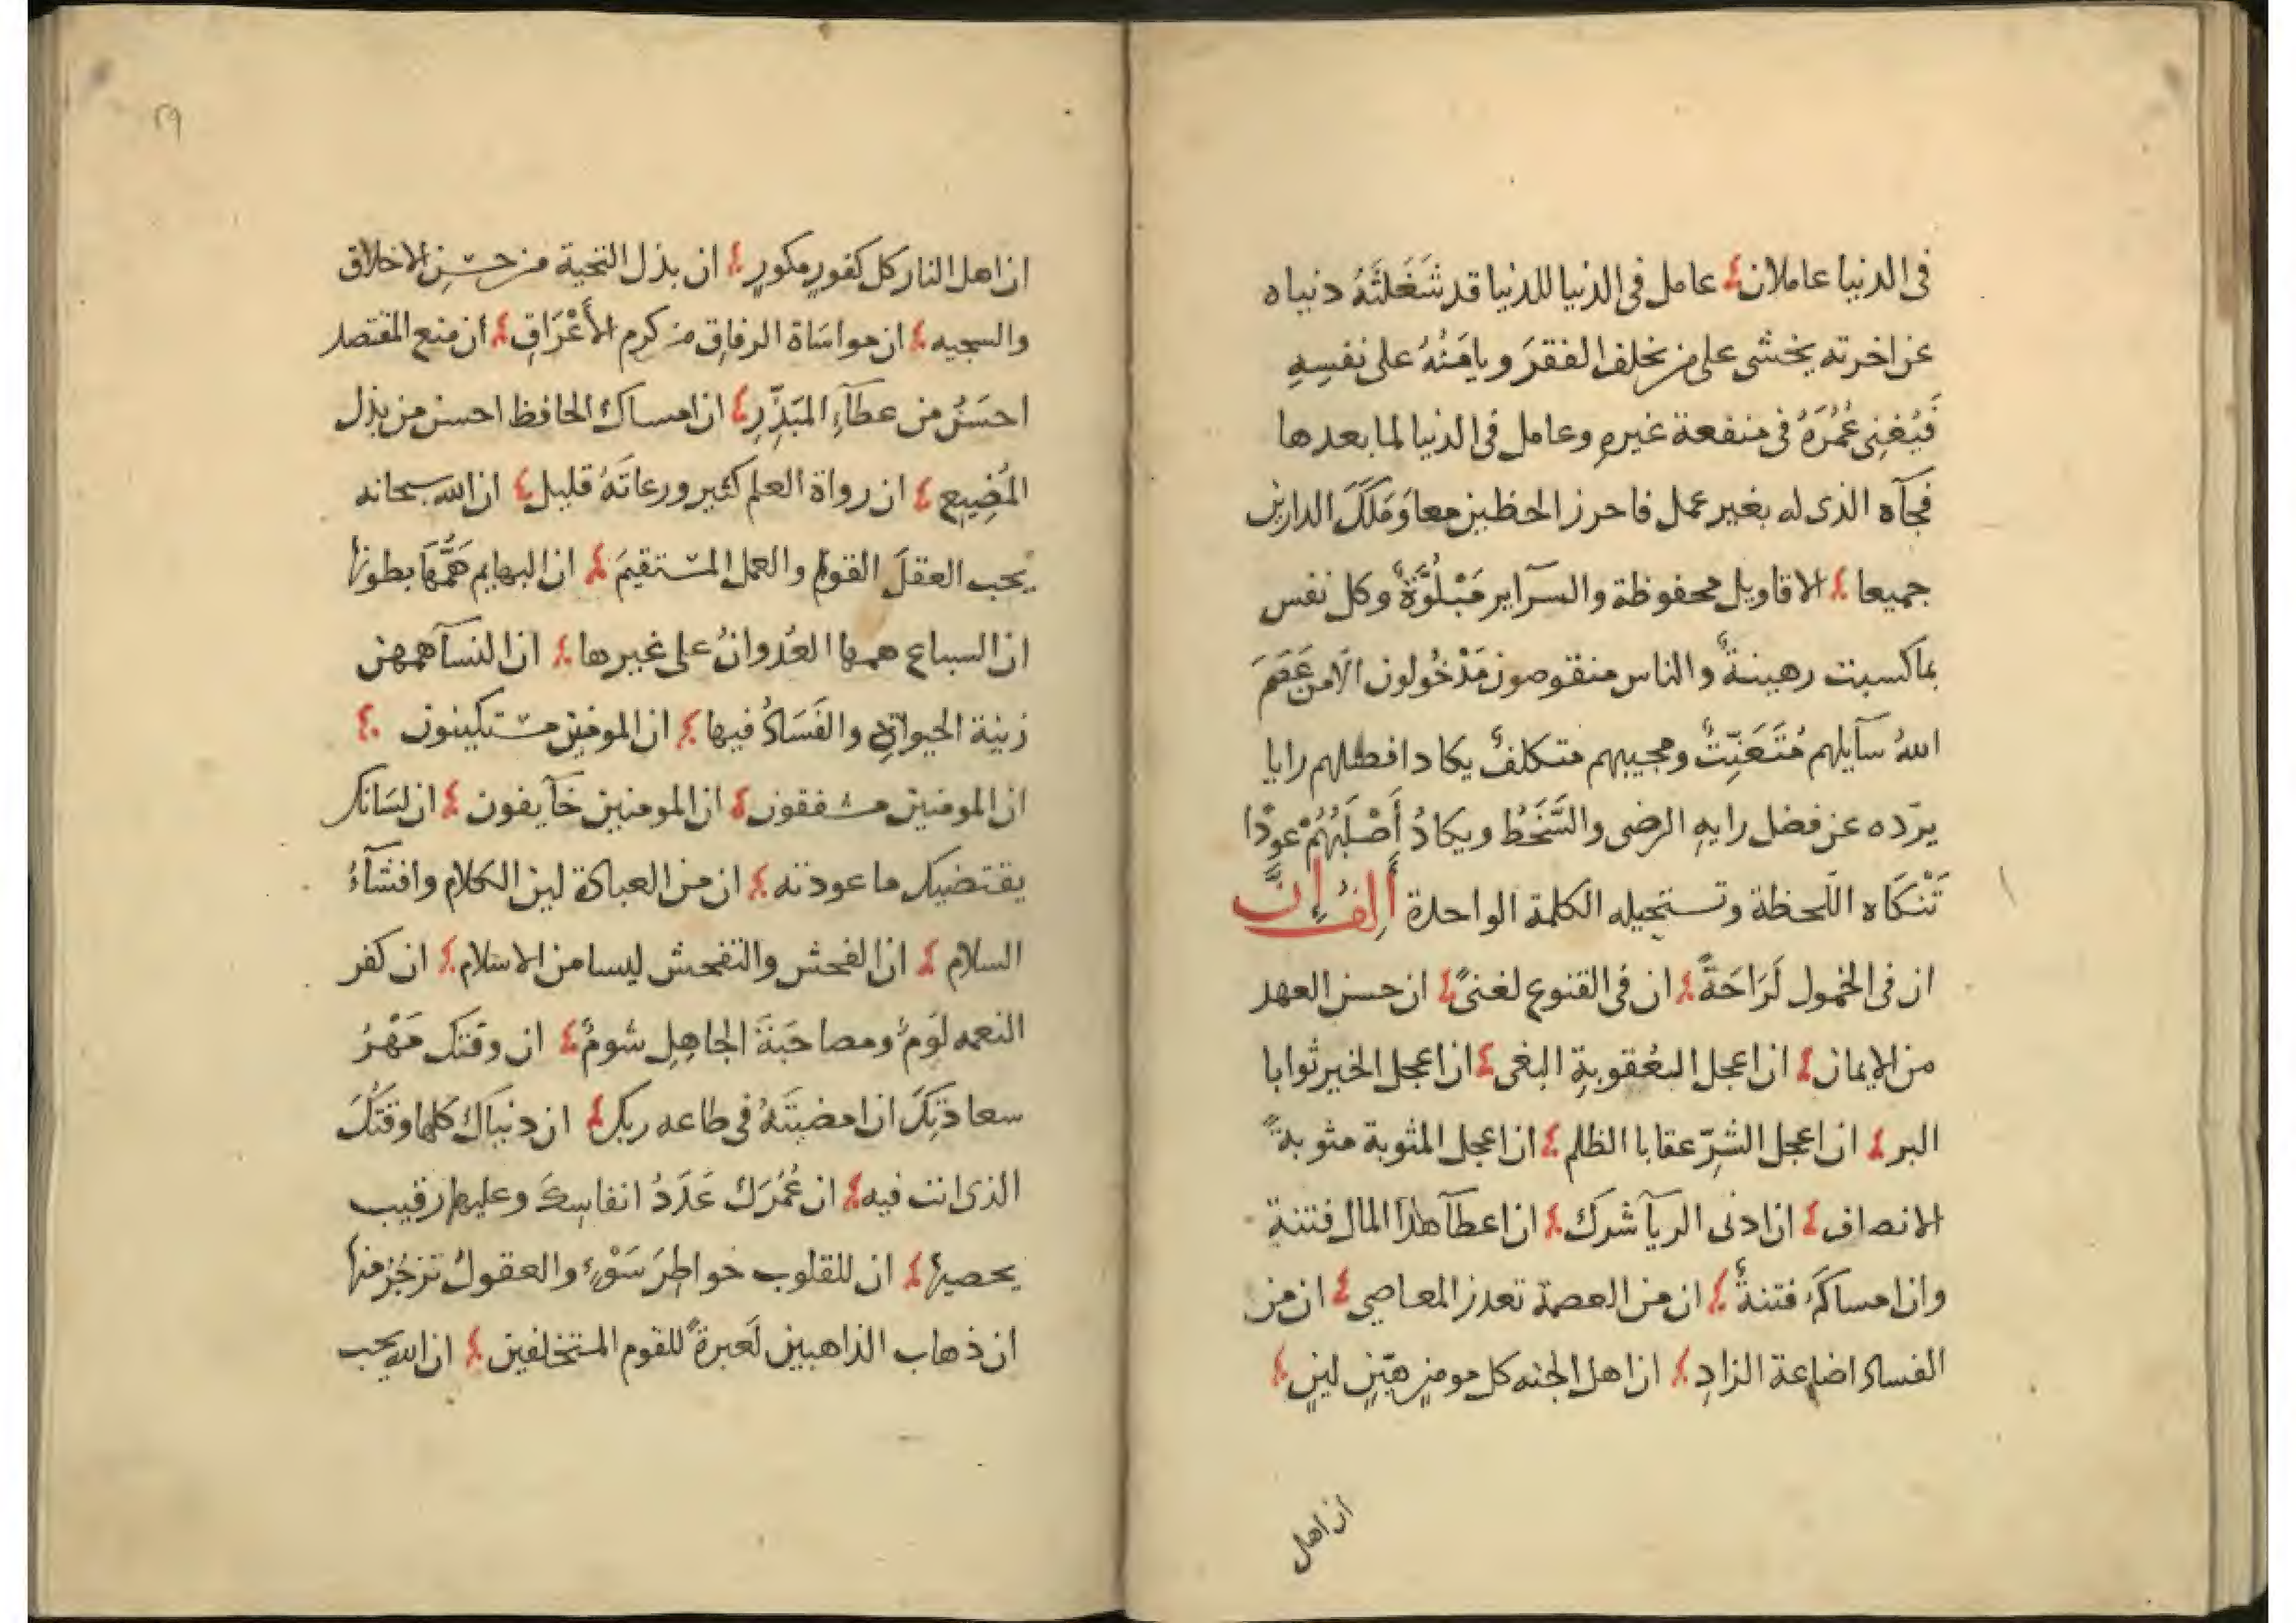 فى الدنيا عاملان عامل فى الدنيا للدنيا قد شَغَلَتْهُ دنياه
عن اخرته يخشى على من يخلف الفقرَ ويامَنُهُ على نفسِهِ
فَيُفنِى عُمُرَهُ فى منفعة غيرهِ وعامل فى الدنيا لما بعدها
فجآه الذى له بغير عمل فاحرز الحظين معا وَمَلَكَ الدارين
جميعا الاقاويل محفوظة والسرآير مَبْلُوَّةٌ وكل نفس
بما كسبت رهينةٌ والناس منقوصون مَدْخُولون الّا من عَصَمَ
اللهُ سآيلهم مُتَعَنِّتٌ ومجيبهم متكلفٌ يكاد افضلهم رايا
يردّه عن فضل رايهِ الرضى والسَّخَطُ ويكادُ أَصْلَبُهُمْ عودًا
تَنْكَاه اللّحظة وتستحيله الكلمة الواحدة أَلِفُ إِنَّ
ان فى الخمول لَرَاحَةً ان فى القنوع لغنىً ان حسن العهد
من الايمان ان اعجل العُقوبةِ البغى ان اعجل الخير ثوابا
البر ان اعجل الشرّ عقابا الظلم ان اعجل المثوبة مثوبةً
الانصاف ان ادنى الريآ شرك ان اعطآ هذا المال فتنة
وان امساكَهُ فتنةٌ ان من العصمة تعذر المعاصى ان من
الفساد اضاعة الزادِ ان اهل الجنه كل مومنٍ هيّنٍ لينٍ
ان اهل
٢٩
ان اهل النار كل كفورٍ مكورٍ ان بذل التحية من حسنِ الاخلاق
والسجيه ان مواسَاة الرفاقِ من كرم الأَعْرَاقِ ان منع المقتصد
احسَنُ من عطآءِ المبَذِّرِ ان امساك الحافظ احسن من بذل
المُضِيعِ ان رواة العلم كثير ورعاتَهُ قليل ان الله سبحانه
يحب العقلَ القويم والعمل المستقيمَ ان البهايم هَمُّهَا بطونها
ان السباع همها العُدوانُ على غيرها ان النسآ همهن
زينة الحيوةِ والفَسَادُ فيها ان المومنين مستكينون
ان المومنين مشفقون ان المومنين خآيفون ان لسَانك
يقتضيك ما عودته ان من العبادة لين الكلام وافشآءُ
السلام ان الفحش والتفحش ليسا من الاسلام ان كفر
النعمه لَومٌ ومصاحَبَةَ الجاهِلِ شومٌ ان وقتك مَهْرُ
سعادتِكَ ان امضيتَهُ فى طاعه ربك ان دنياك كلها وقتُكَ
الذى انت فيه ان عُمُرَكَ عَدَدُ انفاسِكَ وعليها رقيب
يحصيها ان للقلوب خواطِرَ سَوْءٍ والعقولُ تزجُرُ منها
ان ذهاب الذاهبين لَعبرةً للقوم المتخلفين ان الله يحب